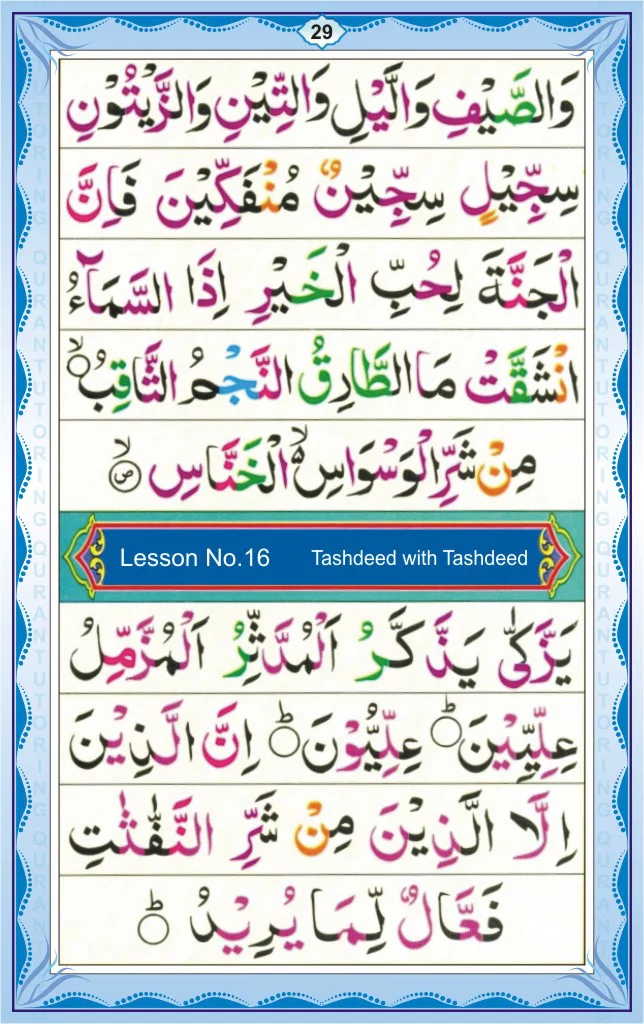 29
وَالصَّيْفِ وَالَّيْلِ وَالتِّيْنِ وَالزَّيْتُوْنِ
سِجِّيْلٍ سِجِّيْنٌ مُنْفَكِّيْنَ فَاِنَّ
الْجَنَّةَ لِحُبِّ الْخَيْرِ اِذَا السَّمَآءُ
انْشَقَّتْ مَا الطَّارِقُ النَّجْمُ الثَّاقِبُ ۙ
مِنْ شَرِّ الْوَسْوَاسِ ۙ الْخَنَّاسِ ۙ ص
Lesson No.16 Tashdeed with Tashdeed
يَزَّكّٰى يَذَّكَّرُ اَلْمُدَّثِّرُ اَلْمُزَّمِّلُ
عِلِّيِّيْنَ ؕ عِلِّيُّوْنَ ؕ اِنَّ الَّذِيْنَ
اِلَّا الَّذِيْنَ مِنْ شَرِّ النَّفّٰثٰتِ
فَعَّالٌ لِّمَا يُرِيْدُ ؕ
QURANTUTORING QURANTUTORING